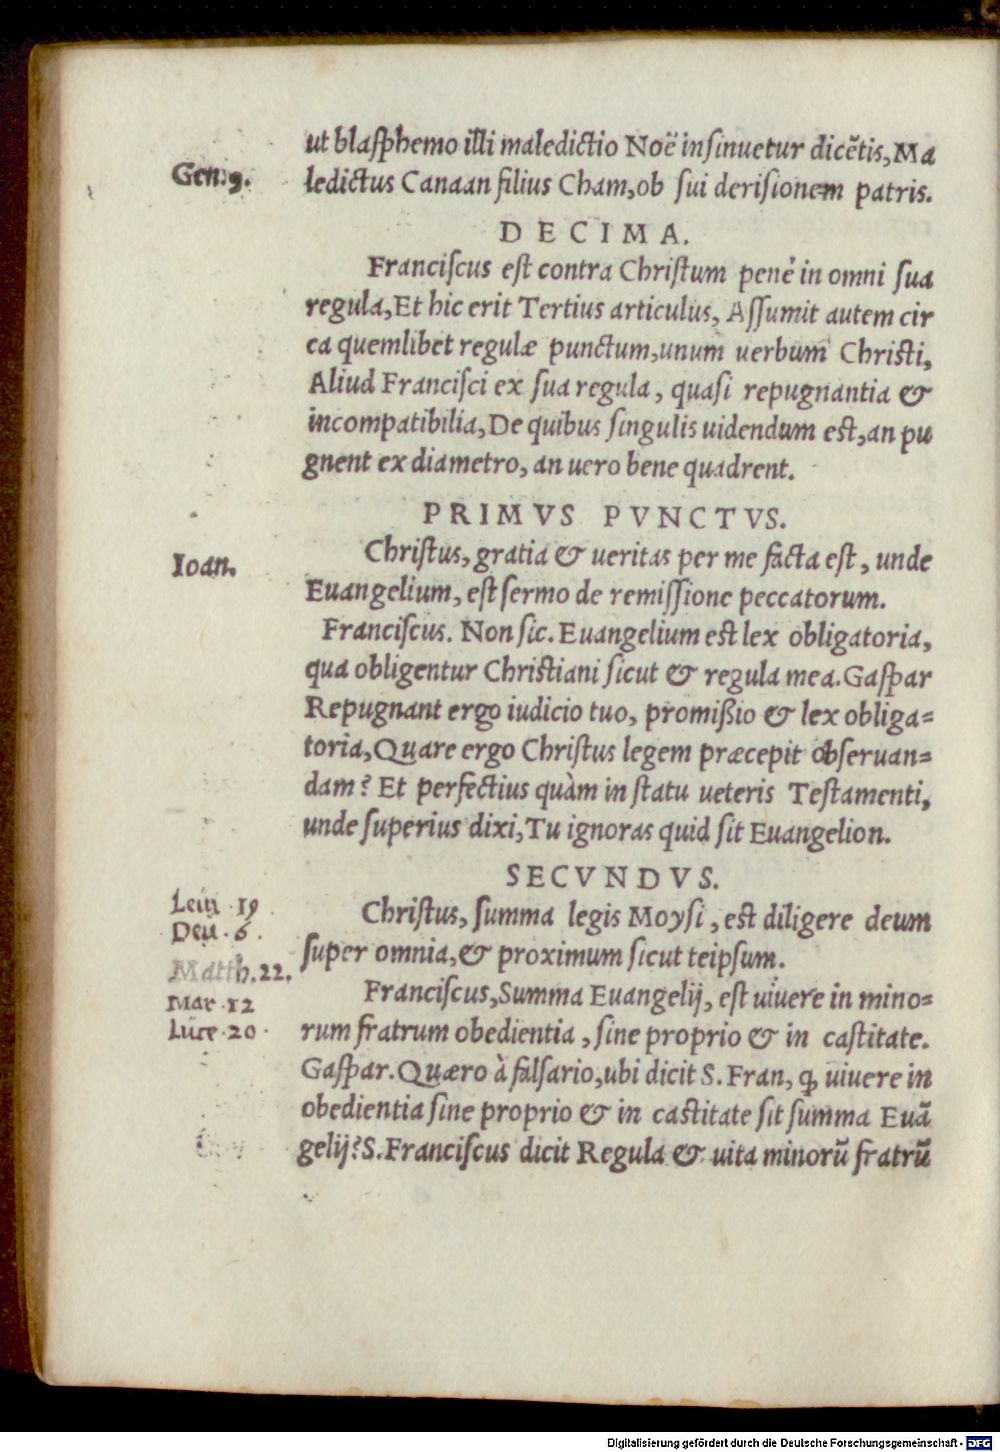 ut blasphemo illi maledictio Noë insinuetur dicētis, Ma
Gen. 9.
ledictus Canaan filius Cham, ob sui derisionem patris.
DECIMA.
Franciscus est contra Christum penè in omni sua
regula, Et hic erit Tertius articulus, Assumit autem cir
ca quemlibet regulæ punctum, unum uerbum Christi,
Aliud Francisci ex sua regula, quasi repugnantia &
incompatibilia, De quibus singulis uidendum est, an pu
gnent ex diametro, an uero bene quadrent.
PRIMVS PVNCTVS.
Christus, gratia & ueritas per me facta est, unde
Ioan.
Euangelium, est sermo de remissione peccatorum.
Franciscus. Non sic. Euangelium est lex obligatoria,
qua obligentur Christiani sicut & regula mea. Gaspar
Repugnant ergo iudicio tuo, promißio & lex obliga=
toria, Quare ergo Christus legem præcepit obseruan=
dam? Et perfectius quàm in statu ueteris Testamenti,
unde superius dixi, Tu ignoras quid sit Euangelion.
SECVNDVS.
Leui. 19
Christus, summa legis Moysi, est diligere deum
Deu. 6.
super omnia, & proximum sicut teipsum.
Matth. 22.
Franciscus, Summa Euangelij, est uiuere in mino=
Mar. 12
rum fratrum obedientia, sine proprio & in castitate.
Luce. 20.
Gaspar. Quæro à falsario, ubi dicit S. Fran, ꝙ uiuere in
obedientia sine proprio & in castitate sit summa Euā
gelij? S. Franciscus dicit Regula & uita minorū fratrū
Digitalisierung gefördert durch die Deutsche Forschungsgemeinschaft - DFG